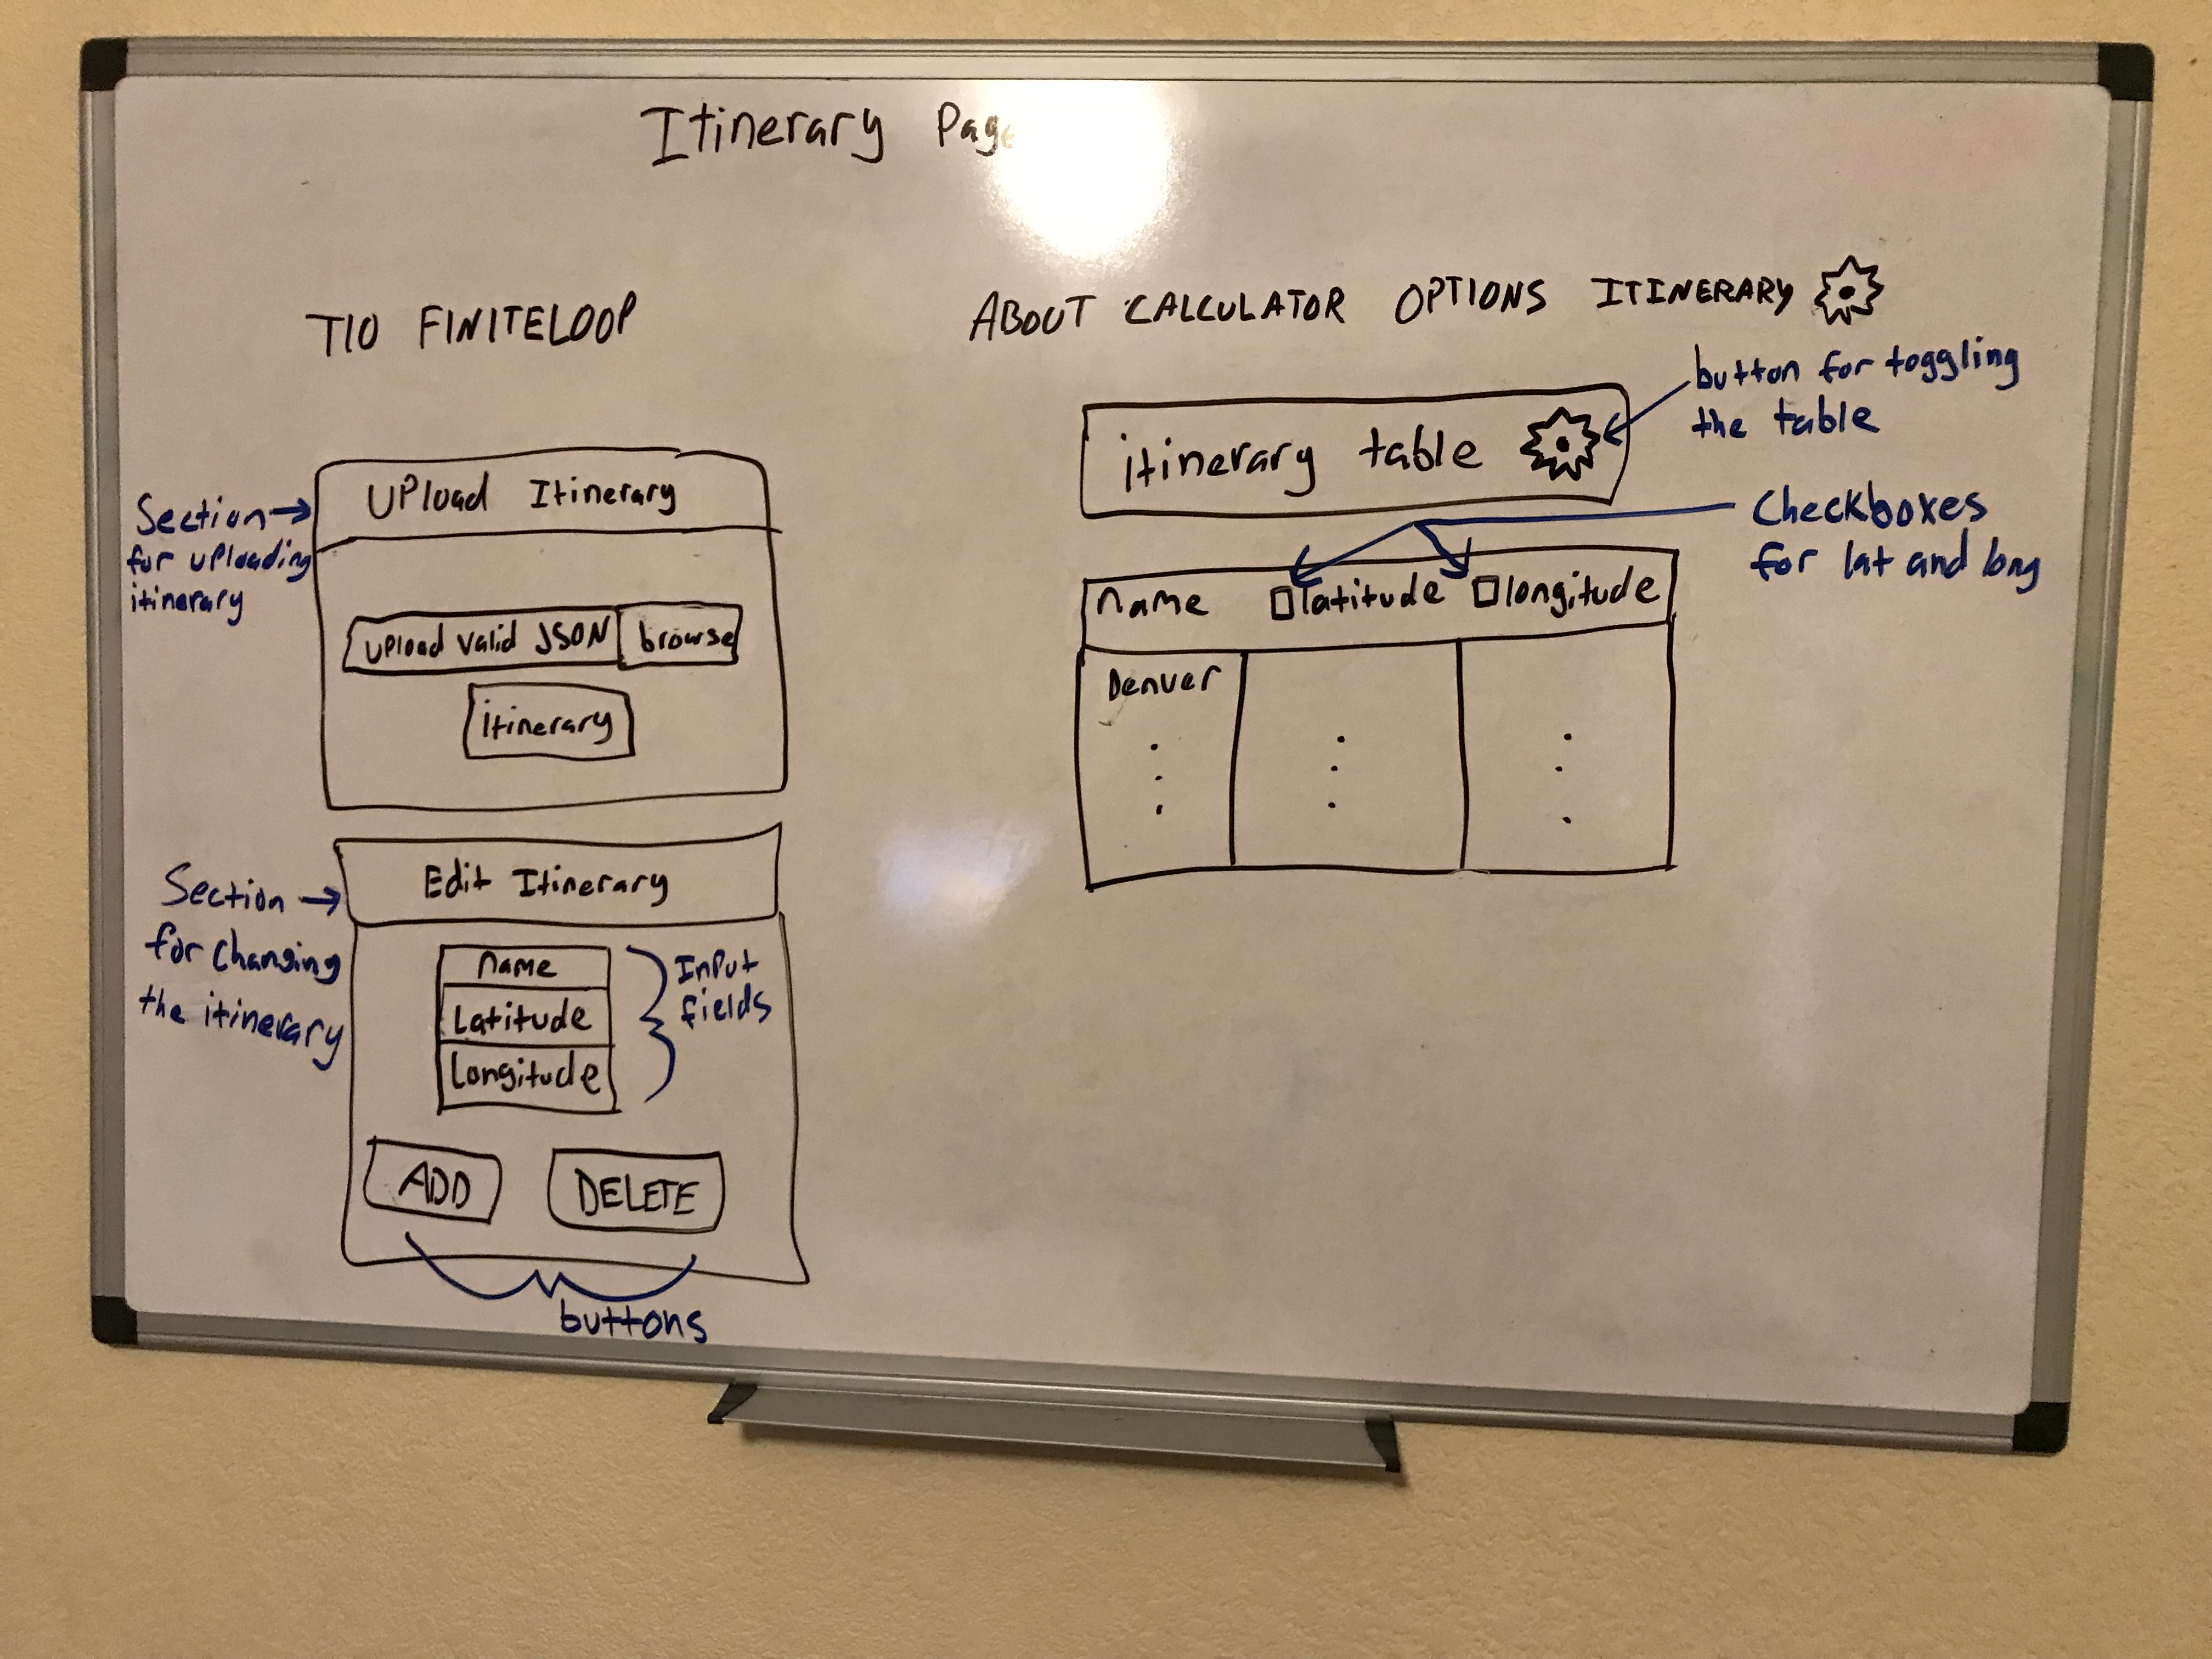 Itinerary Page
T10 FINITELOOP
ABOUT CALCULATOR OPTIONS ITINERARY
Section
for uploading
itinerary
Upload Itinerary
Upload valid JSON browse
itinerary
Section
for changing
the itinerary
Edit Itinerary
name
Latitude
Longitude
Input
fields
ADD DELETE
buttons
itinerary table
button for toggling
the table
Checkboxes
for lat and long
name latitude longitude
Denver